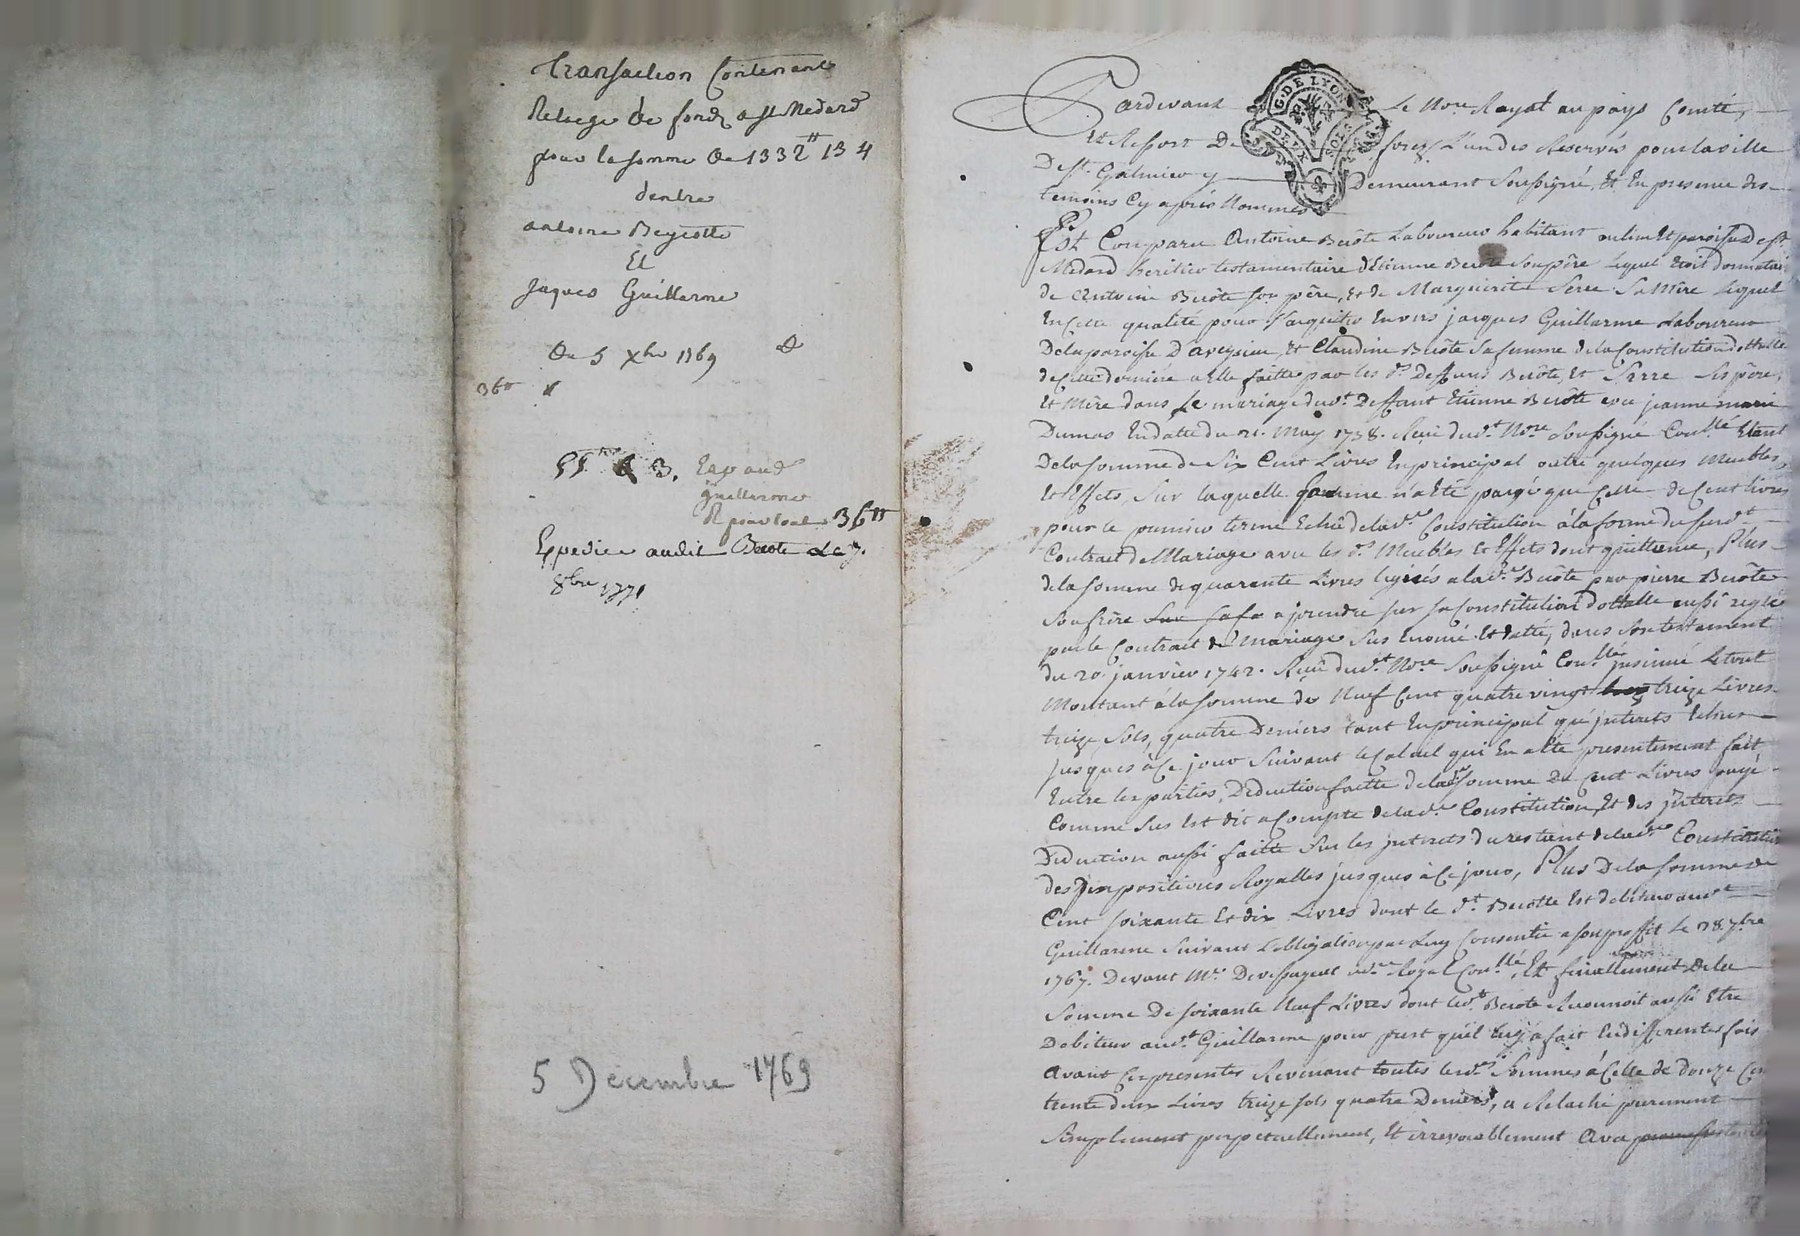 Transaction Contenant
Relaege de fond a St Medard
pour la somme de 1332tt 13 4
dentre
antoine Beyiotte
Et
Jaques Guillarme
Du 5 Xbre 1769
36tt
3.
Guillarme
R pour tout 36tt
Expedié audit Beiote Le 7.
8bre 1771
5 Décembre 1769
G. DE LYON
DEUX SOLS
Pardevant Le Nore Royal au pays Comté,
Et Ressort De forez L'un des Reservés pour la ville
De St. Galmier y Demeurant Soussigné, Et En presence des
temoins Cy après Nommés
Est Comparu Antoine Beiôte Laboureur habitant au lieu Et paroisse de St
Medard heritier testamentaire d'Etienne Beiôte Son père Lequel Etoit donnatair
de Antoine Beiôte son père, Et de Marguerite Serre Sa Mère Lequel
En Cette qualité pour S'acquitter Envers jacques Guillarme Laboureur
De la paroisse D'aveysieu, Et Claudine Beiôte Sa femme de la Constitution dottalle
de Cette derniére a Elle faitte par les ds. Deffunts Beiôte, Et Serre Ses père,
Et Mère dans Le mariage dudt. Deffunt Etienne Beiôte avec jeanne marie
Dumas En datte du 21. May 1738. Reçu dudt. Nore Soussigné Conllé Etant
De la somme de Six Cent Livres En principal outre quelques Meubles,
Et Effets, Sur laquelle somme n'a Eté payé que Celle de Cent livres
pour le premier terme Echû de lade. Constitution à la forme du susdt.
Contrait de Mariage avec les ds. Meubles Et Effets dont quittance, Plus
de la somme de quarante Livres légués a lade. Beiôte par pierre Beiôte
Son frère a prendre sur sa Constitution dottalle aussi reglée
par le Contrait de Mariage Sus Enoncé Et datté, dans Son testament
du 20. janvier 1742. Reçu dudt. Nore Soussigné Conllé, jnsinué Le tout
Montant à la somme de Neuf Cent quatre vingt treize Livres
treize Sols, quatre Deniers tant En principal que jnterets Echus
jusques à Ce jour Suivant le Calcul qui En a Eté presentement fait
Entre les parties, Deduction faitte de lade. Somme De Cent Livres payé
Comme Sus Est dit a Compte de lade. Constitution, Et des jnterets
Deduction aussi faitte Sur les jnterets du restant de lade. Constitution
des jmpositions Royalles jusques à Ce jour, Plus De la somme de
Cent soixante Et dix Livres dont le dt. Beiotte Est debiteur audt.
Guillarme Suivant L'obligation par Luy Consentie a son proffit Le 18. 7bre
1767. Devant Me. Nore Royal Conllé, Et finallement de la
Somme De soixante Neuf Livres dont ledt. Beiote Reconnoit aussi Etre
Debiteur audt. Guillarme pour prest qu'il luy a fait En differentes fois
avant Ces presentes Revenant toutes lesds. Sommes à Celle de douze Cent
trente deux Livres treize sols quatre Deniers, a Relaché purement
Simplement perpetuellement, Et irrevocablement Avec